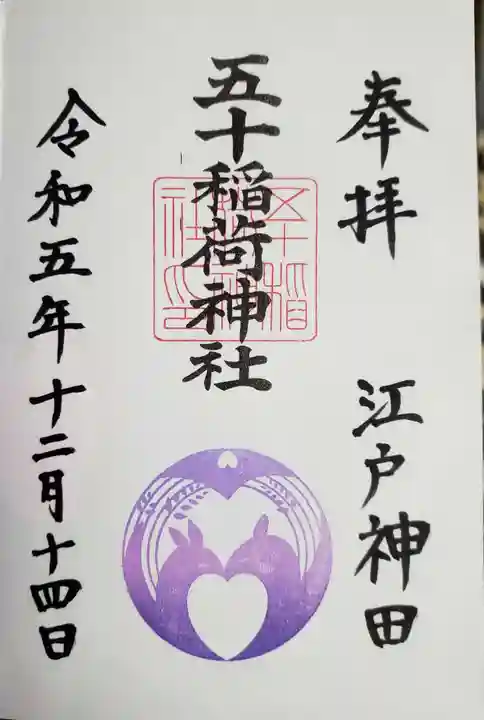 奉拝 江戸神田
五十稲荷神社
令和五年十二月十四日